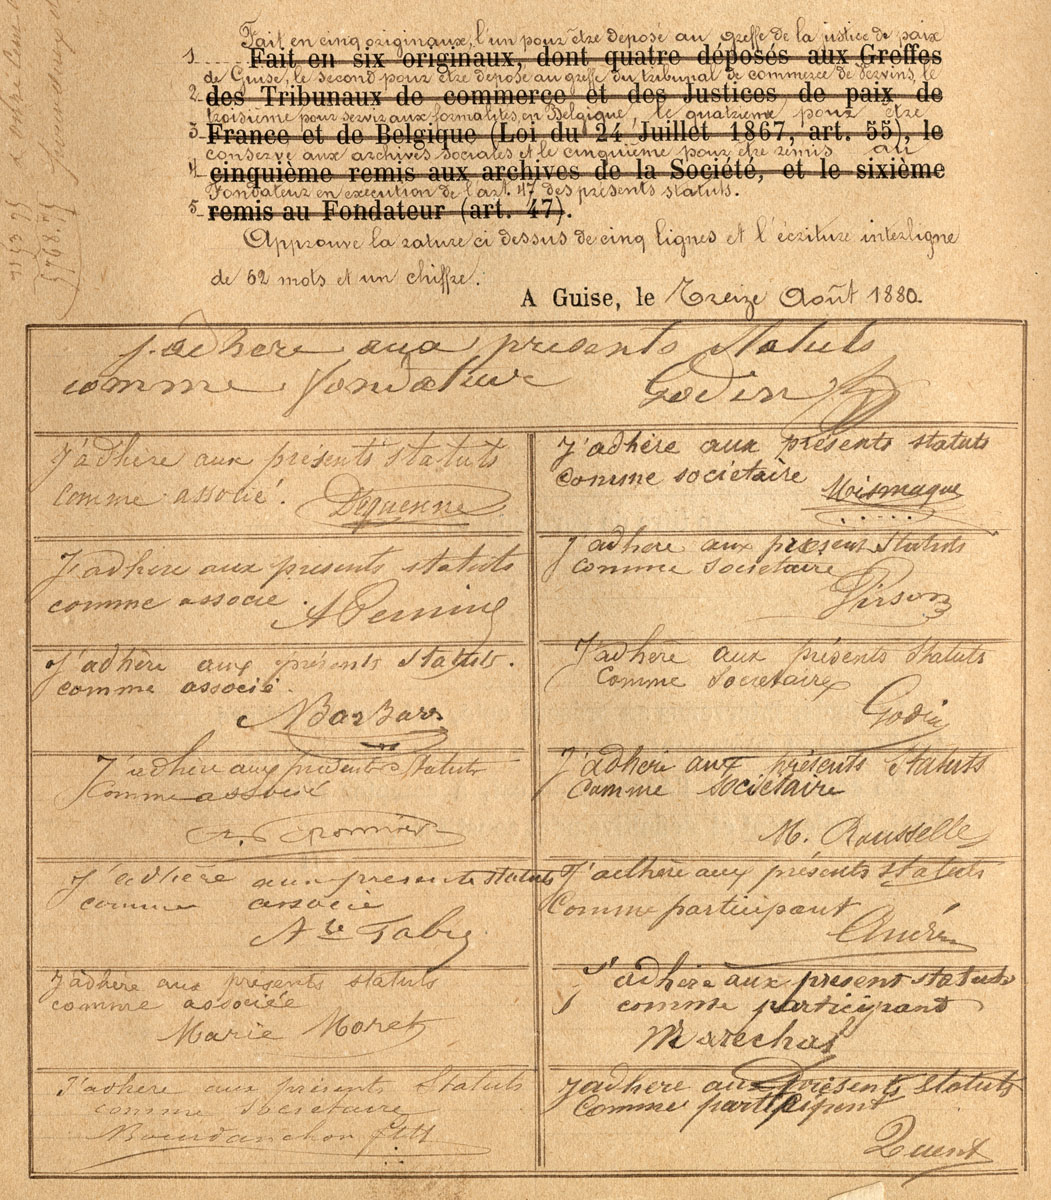 Fait en cinq originaux, l'un pour être déposé au greffe de la justice de paix
1 Fait en six originaux, dont quatre déposés aux Greffes
de Guise, le second pour être déposé au greffe du tribunal de commerce de Vervins, le
2 des Tribunaux de commerce et des Justices de paix de
troisième pour servir aux formalités, en Belgique, le quatrième pour être
3 France et de Belgique (Loi du 24 Juillet 1867, art. 55), le
conservé aux archives sociales et le cinquième pour être remis au
4 cinquième remis aux archives de la Société, et le sixième
Fondateur en exécution de l'art. 47 des présents statuts.
5 remis au Fondateur (art. 47).
Approuvé la rature ci dessus de cinq lignes et l'écriture interligne
de 62 mots et un chiffre.
A Guise, le Treize Août 1880.
J'adhere aux presents statuts
comme Fondateur Godin
J'adhère aux présents statuts
comme associé.
Dequenne
J'adhère aux présents statuts
comme associé.
A Pernin
J'adhère aux présents statuts.
comme associé.
Barbary
J'adhère aux présents statuts
Comme associé
J'adhéré aux presents statuts
comme associé
Fabre
J'adhère aux présents statuts
comme associée
Marie Moret
J'adhère aux présents Statuts
comme sociétaire
J'adhère aux présents statuts
comme sociétaire
J'adhère aux présent statuts
comme sociétaire
Pirson
J'adhère aux présents statuts
Comme Sociétaire
Godin
J'adhère aux présents Statuts
Comme sociétaire
M. Rousselle
J'adhère aux présents statuts
Comme participant
André
J'adhère aux present statuts
comme participant
Marechal
J'adhère aux présents statuts
Comme participent
Quent